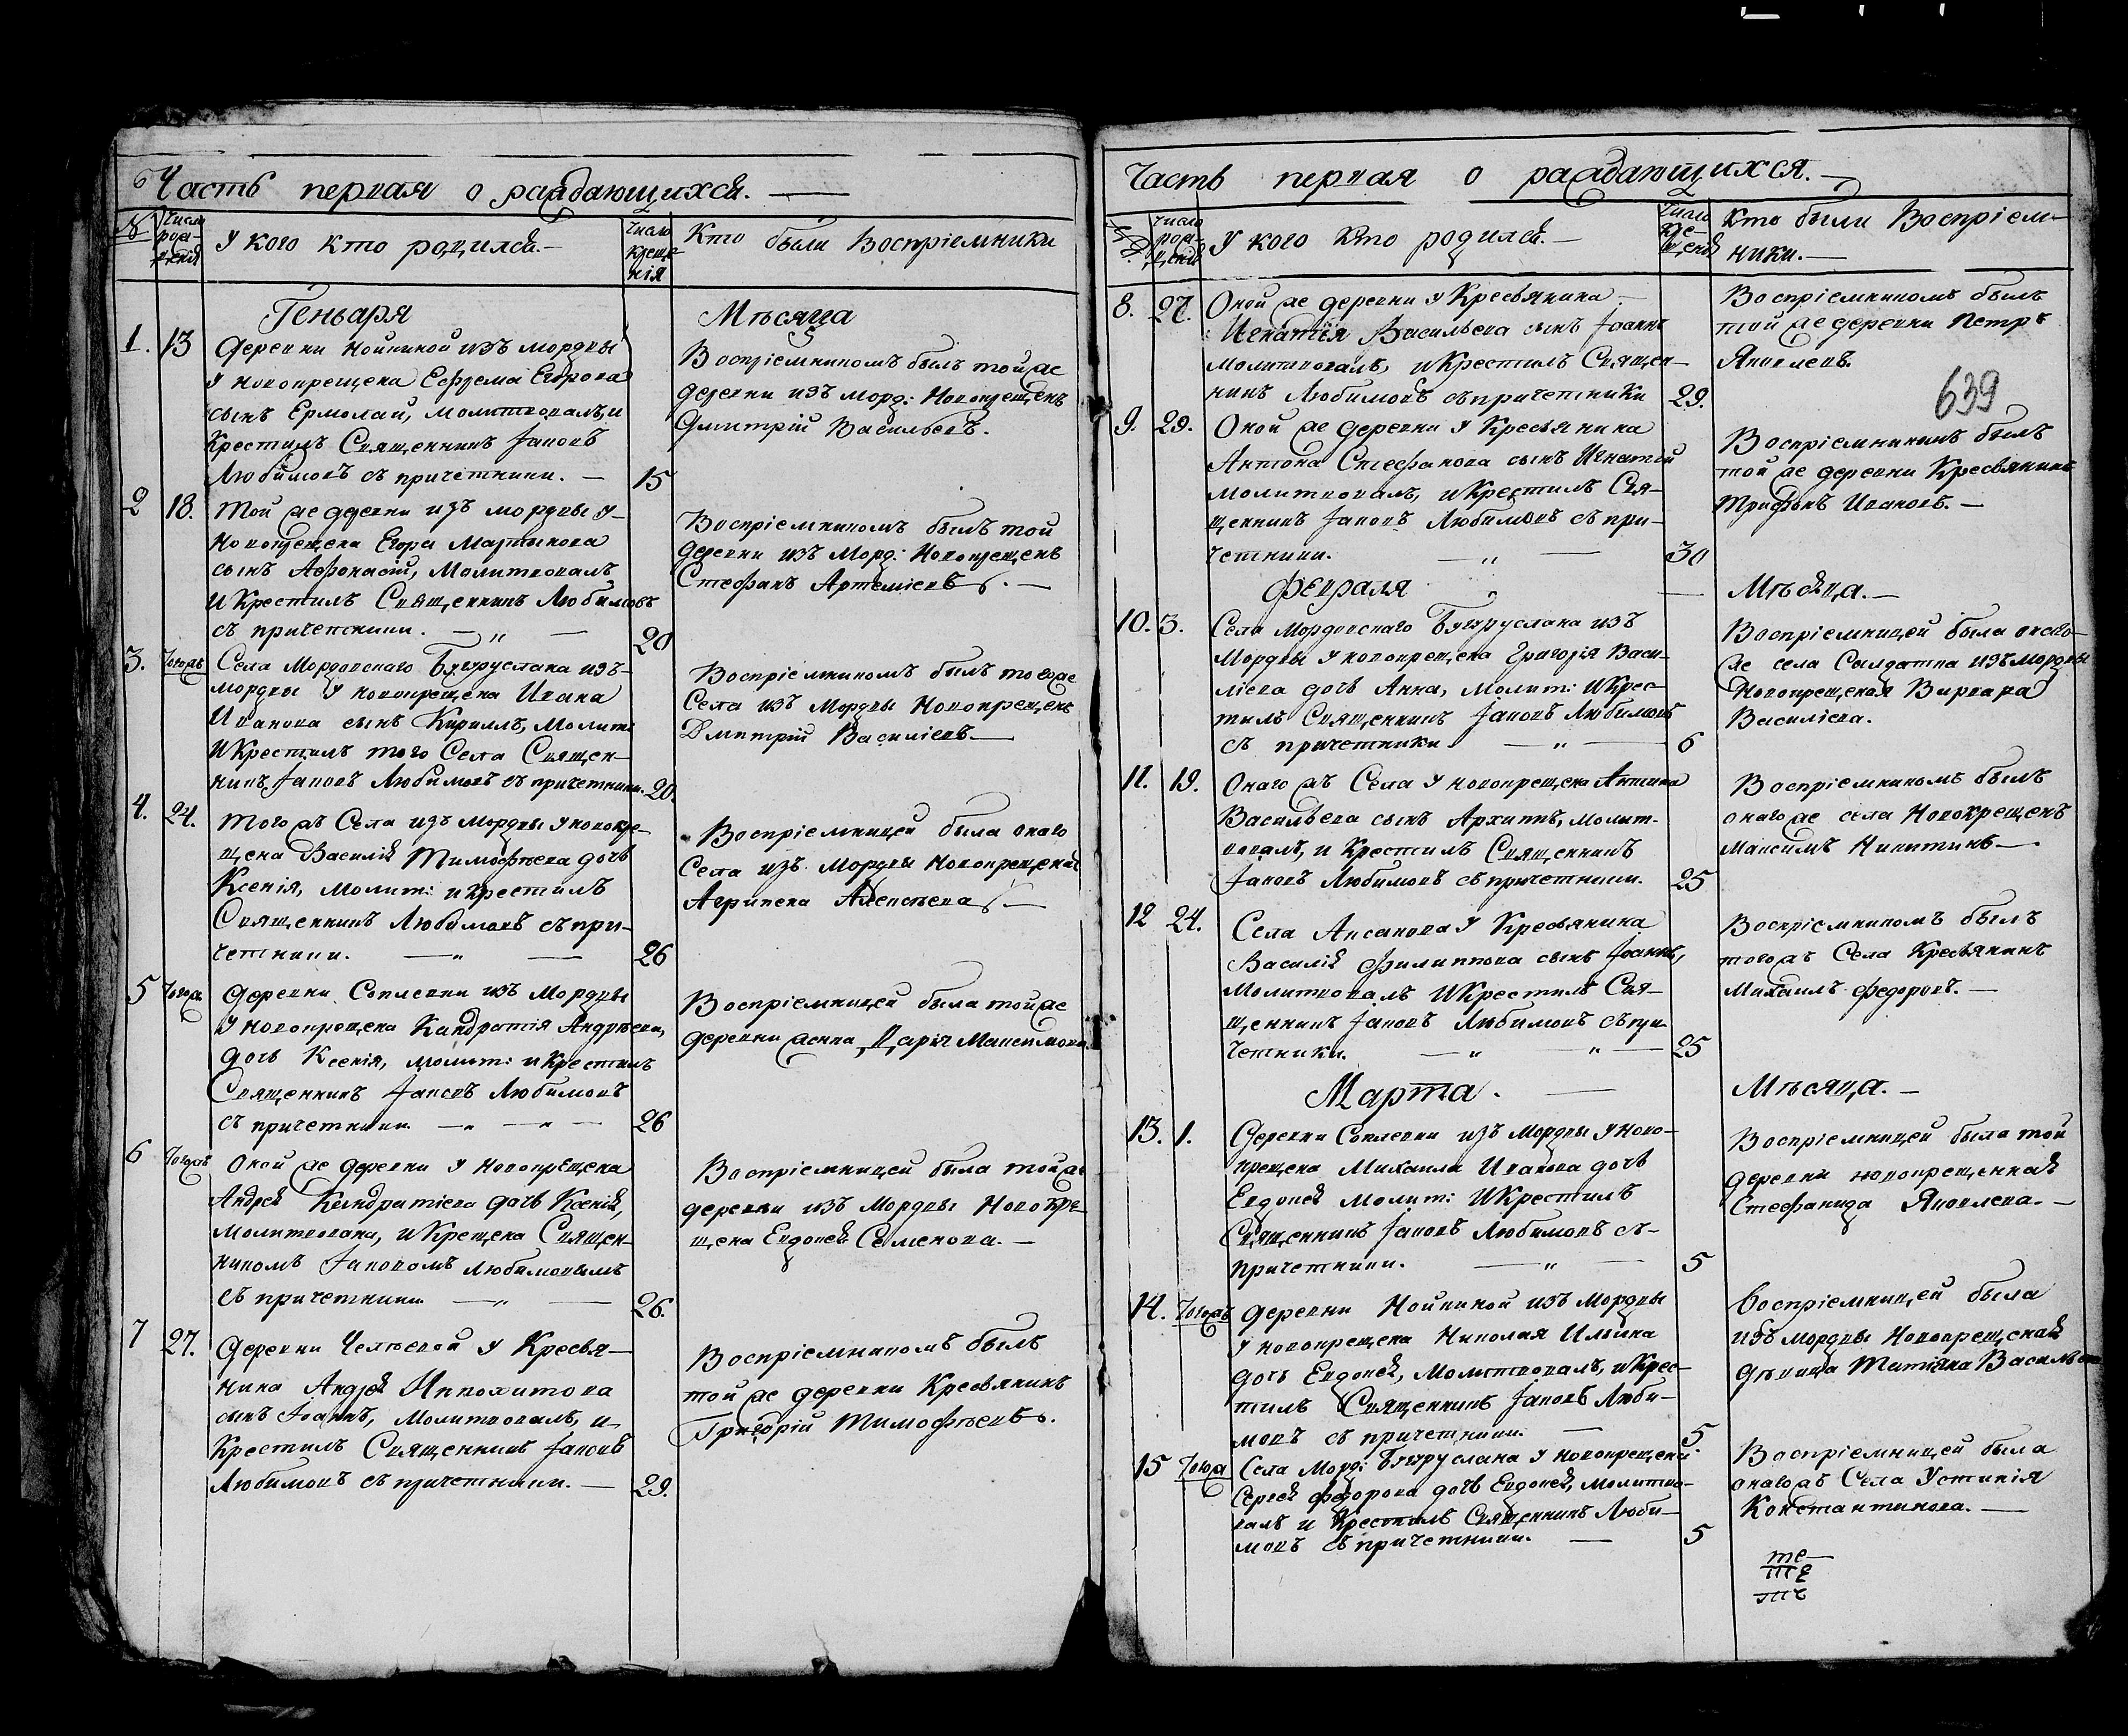 Часть первая о раждающихся.
№ Число рожденія
У кого кто родился.
Число крещенія
Кто были Воспріемники
Генваря
Мѣсяца
1. 13
Деревни Нойкиной изъ мордвы
у новокрещена Ефрема Егорова
сынъ Ермолай, молитвовалъ, и
Крестилъ Священникъ Іаковъ
Любимовъ съ причетники. — 15
Воспріемникомъ былъ той же
деревни изъ морд: Новокрещенъ
Дмитрій Васильевъ.
2 18.
Той же деревни изъ мордвы у
новокрещена Егора Мартынова
сынъ Афонасій, Молитвовалъ
и Крестилъ Священникъ Любимовъ
съ причетники. — „ — 20
Воспріемникомъ былъ той
деревни изъ Морд: Новокрещенъ
Стефанъ Артеміевъ. —
3. Тогожъ
Села Мордовскаго Бугуруслана изъ
мордвы У новокрещена Ивана
Иванова сынъ Кириллъ, Молит:
и Крестилъ того Села Священ-
никъ Іаковъ Любимовъ съ причетники. 20.
Воспріемникомъ былъ тогоже
Села изъ Мордвы Новокрещенъ
Дмитрій Василіевъ —
4. 24.
Того жъ Села изъ Мордвы у новокре-
щена Василія Тимофѣева дочь
Ксенія, молит: и крестилъ
Священникъ Любимовъ съ при-
четники. — „ — 26
Воспріемницей была онаго
Села изъ Мордвы Новокрещеная
Агрипена Алексѣева. —
5 Тогожъ
Деревни Соплевки изъ Мордвы
У новокрещена Кандратія Андрѣева,
дочь Ксенія, молит: и Крестилъ
Священникъ Іаковъ Любимовъ
съ причетники — „ — „ — 26
Воспріемницей была той же
деревни женка Дарія Максимова
6 Тогожъ
Оной же деревни у новокрещена
Андрея Кандратіева дочь Ксенія,
молитвована, и Крещена Священ-
никомъ Іаковомъ Любимовымъ
съ причетники — „ — 26.
Воспріемницей была той же
деревни изъ Мордвы Новокре-
щена Евдокея Семенова. —
7 27.
Деревни Челпевой у Крестья-
нина Андрея Ипполитова
сынъ Іоаннъ, Молитвовалъ, и
Крестилъ Священникъ Іаковъ
Любимовъ съ причетники. — 29.
Воспріемникомъ былъ
той же деревни Крестьянинъ
Григорій Тимофѣевъ.
Часть первая о раждающихся. —
Число рожденія
У кого Кто родился. —
Число крещенія
Кто были Воспріем-
ники. —
8. 27.
Оной же деревни у Крестьянина
Игнатія Васильева сынъ Іоаннъ
молитвовалъ, и Крестилъ Священ-
никъ Любимовъ съ причетники 29.
Воспріемникомъ былъ
той же деревни Петръ
Яковлевъ.
639
9. 29.
Оной же деревни у Крестьянина
Антона Стефанова сынъ Игнатей
молитвовалъ, и Крестилъ Свя-
щенникъ Іаковъ Любимовъ съ при-
четники. — „ — 30
Воспріемникомъ былъ
той же деревни Крестьянинъ
Трифонъ Ивановъ. —
Февраля
Мѣсяца. —
10. 3.
Села Мордовскаго Бугуруслана изъ
Мордвы у новокрещена Григорія Васи-
ліева дочь Анна, Молит: и Крес-
тилъ Священникъ Іаковъ Любимовъ
съ причетники — „ — 6
Воспріемницей была онаго-
же села Салдатка изъ мордвы
Новокрещеная Варвара
Василіева.
11. 19.
Онаго жъ Села у новокрещена Антипа
Васильева сынъ Архипъ, молит-
вовалъ, и Крестилъ Священникъ
Іаковъ Любимовъ съ причетники. 25
Воспріемникомъ былъ
онаго же села Новокрещенъ
Максимъ Никитинъ —
12 24.
Села Аксакова У Крестьянина
Василія Филиппова сынъ Іоаннъ,
Молитвовалъ и Крестилъ Свя-
щенникъ Іаковъ Любимовъ съ при
четники. — „ — „ — 25
Воспріемникомъ былъ
того жъ Села Крестьянинъ
Михаилъ Федоровъ. —
Марта. —
Мѣсяца. —
13. 1.
Деревни Соплевки изъ Мордвы у ново-
крещена Михаила Иванова дочь
Евдокея Молит: и Крестилъ
Священникъ Іаковъ Любимовъ съ-
причетники. — „ — 5
Воспріемницей была той
деревни новокрещенная
Стефанида Яковлева. —
14. Тогожъ
деревни Нойкиной изъ Мордвы
у новокрещена Николая Ильина
дочь Евдокея, Молитвовалъ, и Крес-
тилъ Священникъ Іаковъ Люби-
мовъ съ причетники. — 5.
Воспріемницей была
изъ мордвы Новокрещеная
дѣвица Татіяна Васильева
15 Тогожъ
Села Морд: Бугуруслана у новокрещена
Сергея Федорова дочь Евдокея, молитво-
валъ и Крестилъ Священникъ Люби-
мовъ съ причетники. — 5
Воспріемницей была
онаго жъ Села Устинія
Константинова. —